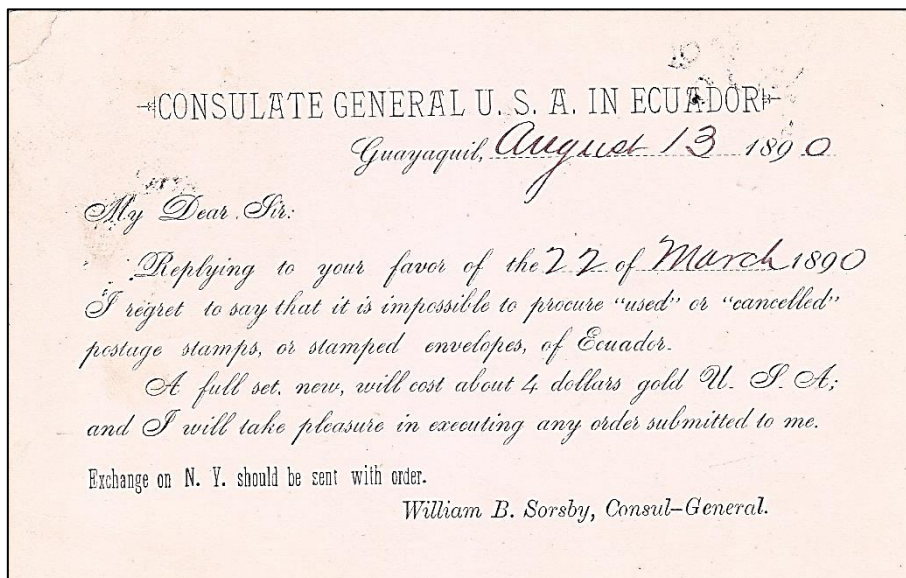 CONSULATE GENERAL U. S. A. IN ECUADOR
Guayaquil, August 13 1890
My Dear Sir:
Replying to your favor of the 22 of March 1890
I regret to say that it is impossible to procure "used" or "cancelled"
postage stamps, or stamped envelopes, of Ecuador.
A full set, new, will cost about 4 dollars gold U. S. A;
and I will take pleasure in executing any order submitted to me.
Exchange on N. Y. should be sent with order.
William B. Sorsby, Consul-General.